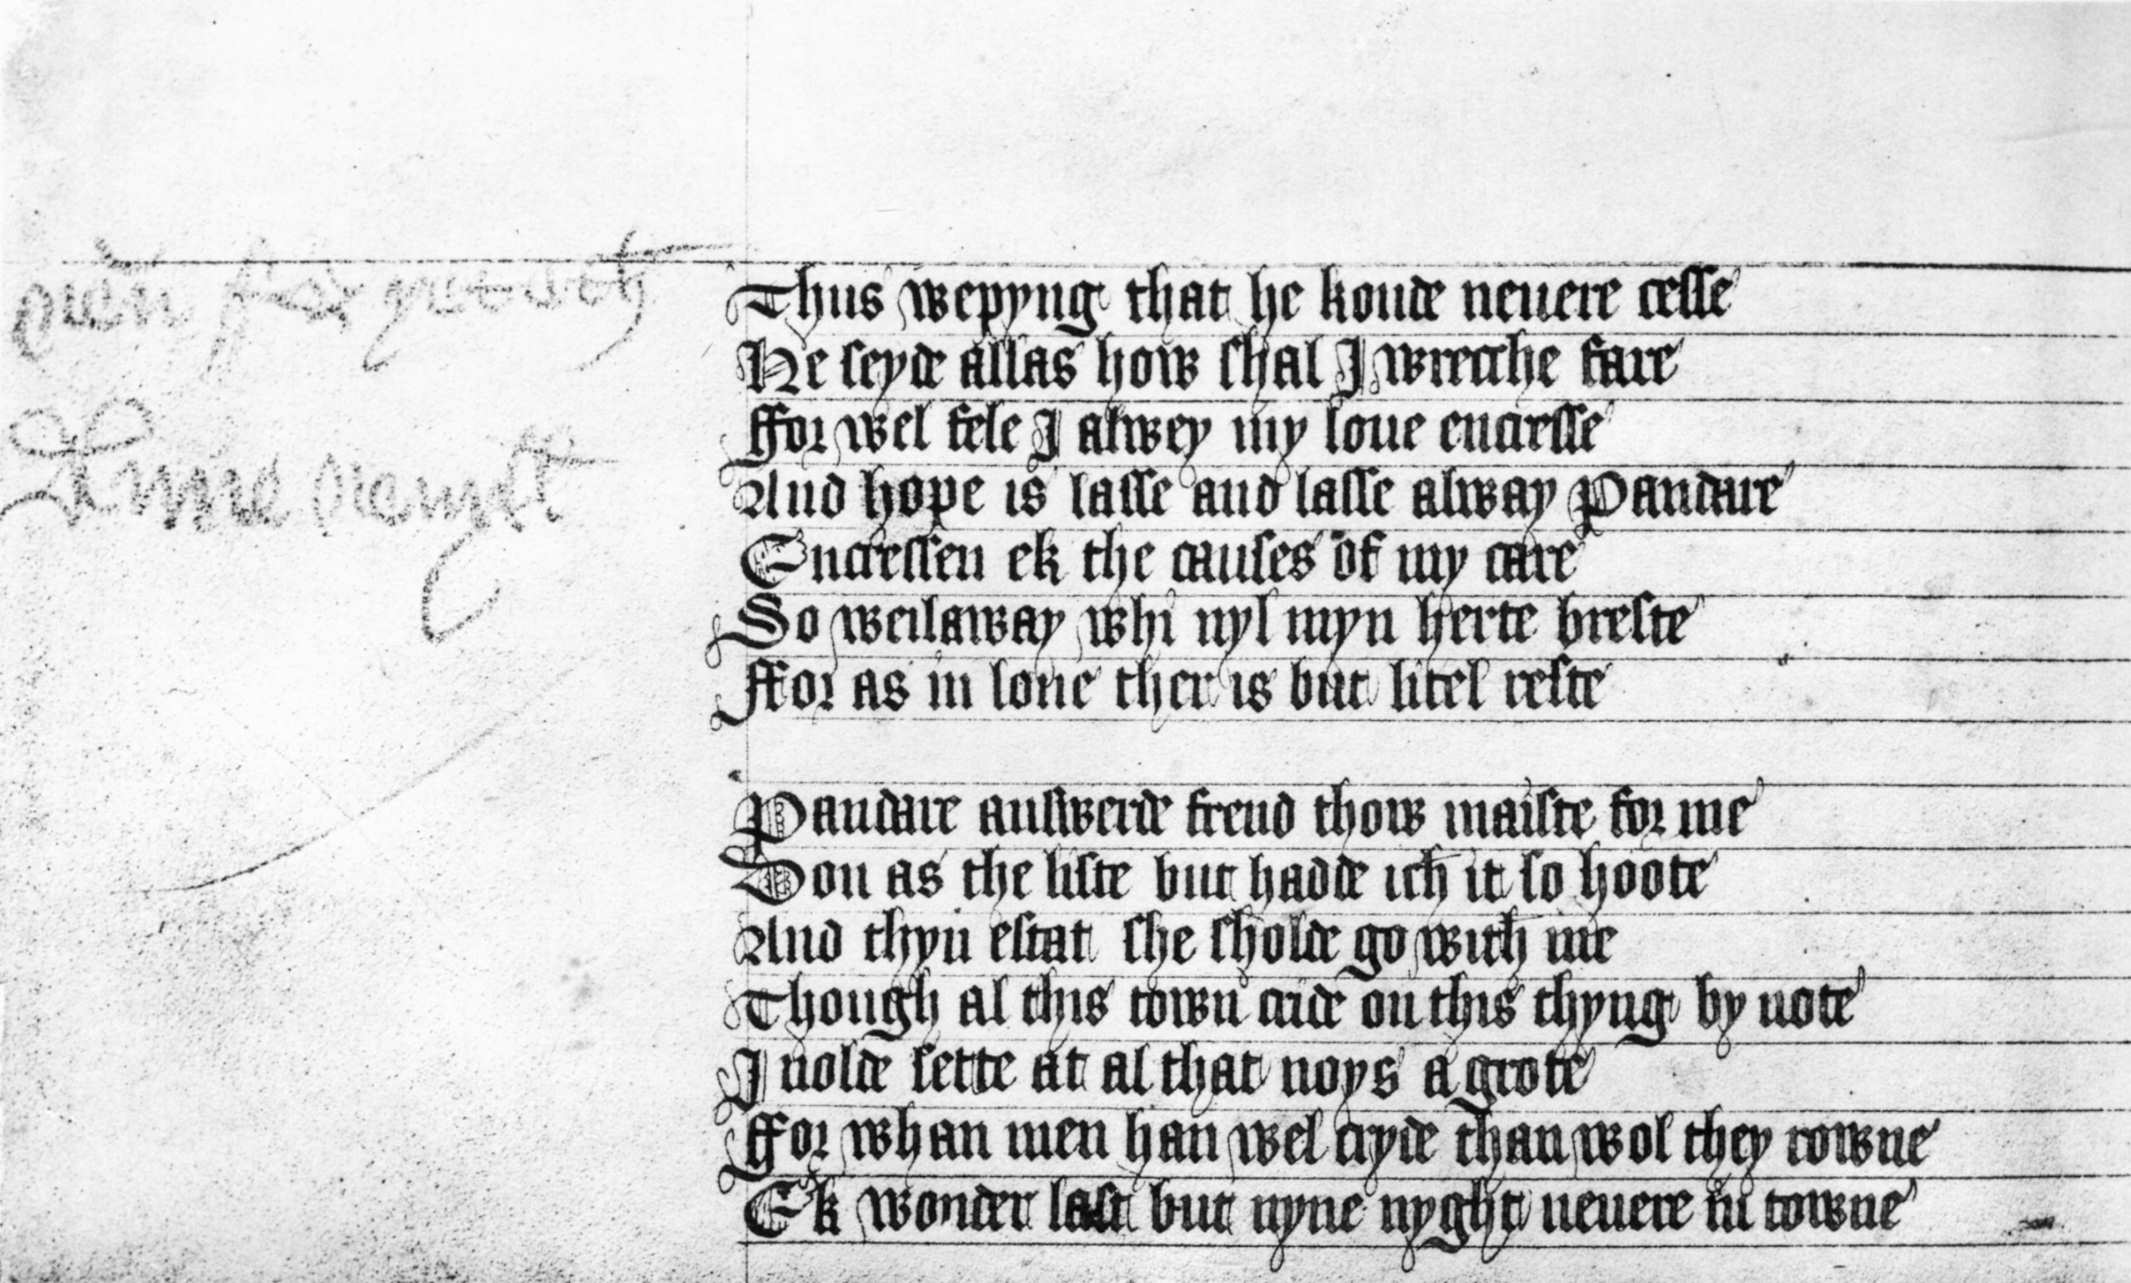 Thus wepyng that he koude neuere cesse
He seyde allas how shal I wrecche fare
ffor wel fele I alwey my loue encresse
And hope is lasse and lasse alway Pandare
Encressen ek the causes of my care
So weilaway whi nyl myn herte breste
ffor as in loue ther is but litel reste
Pandare answerde frend thow maiste for me
Don as the liste but hadde ich it so hoote
And thyn estat she sholde go with me
Though al this town cride on this thyng by note
I nolde sette at al that noys a grote
ffor whan men han wel cryde than wol they rowne
Ek wonder last but nyne nyght neuere in towne